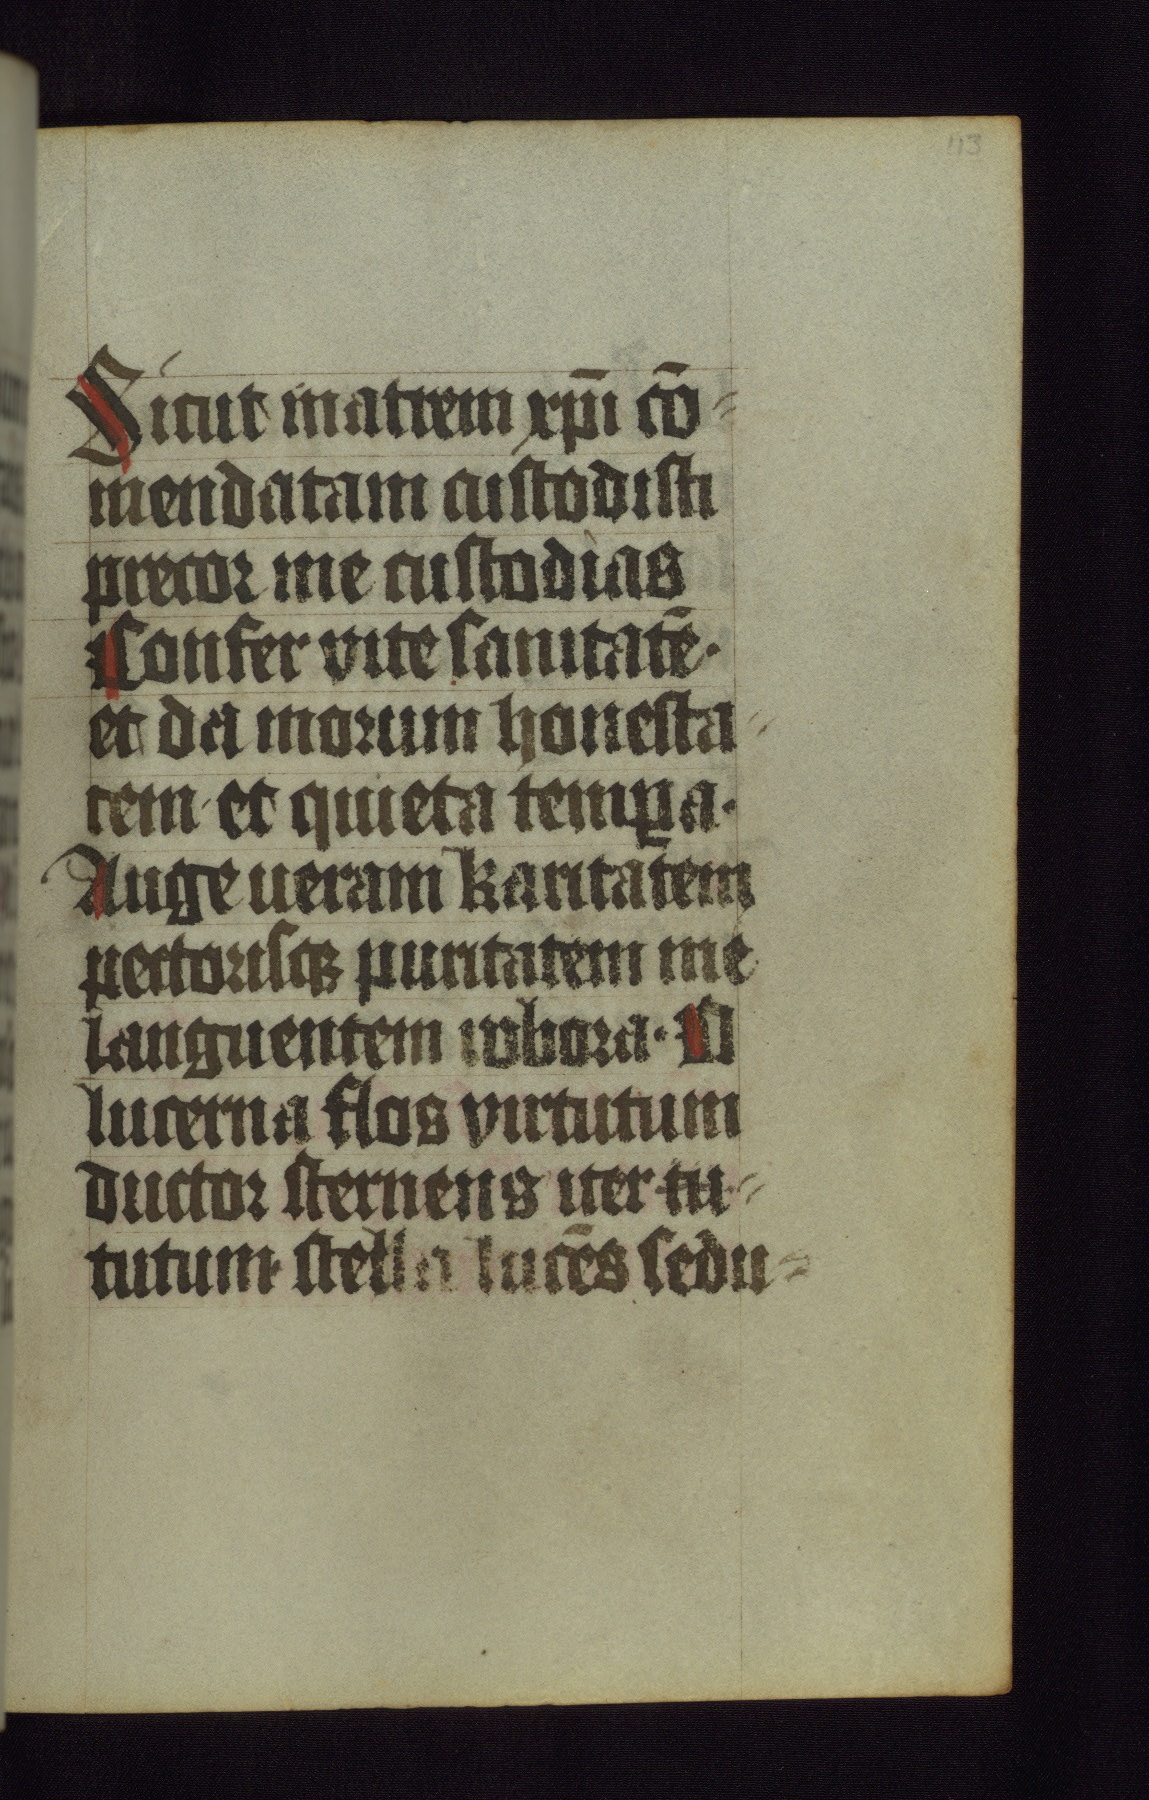 113
Sicut matrem xp̄i cō=
mendatam custodisti
precor me custodias
Confer vite sanitatē·
et da morum honesta=
tem et quieta temp̲a·
Auge ueram karitatem
pectorisqꝫ puritatem me
languentem robora· O
lucerna flos virtutum
ductor sternens iter tu=
tutum stella lucēs sedu=